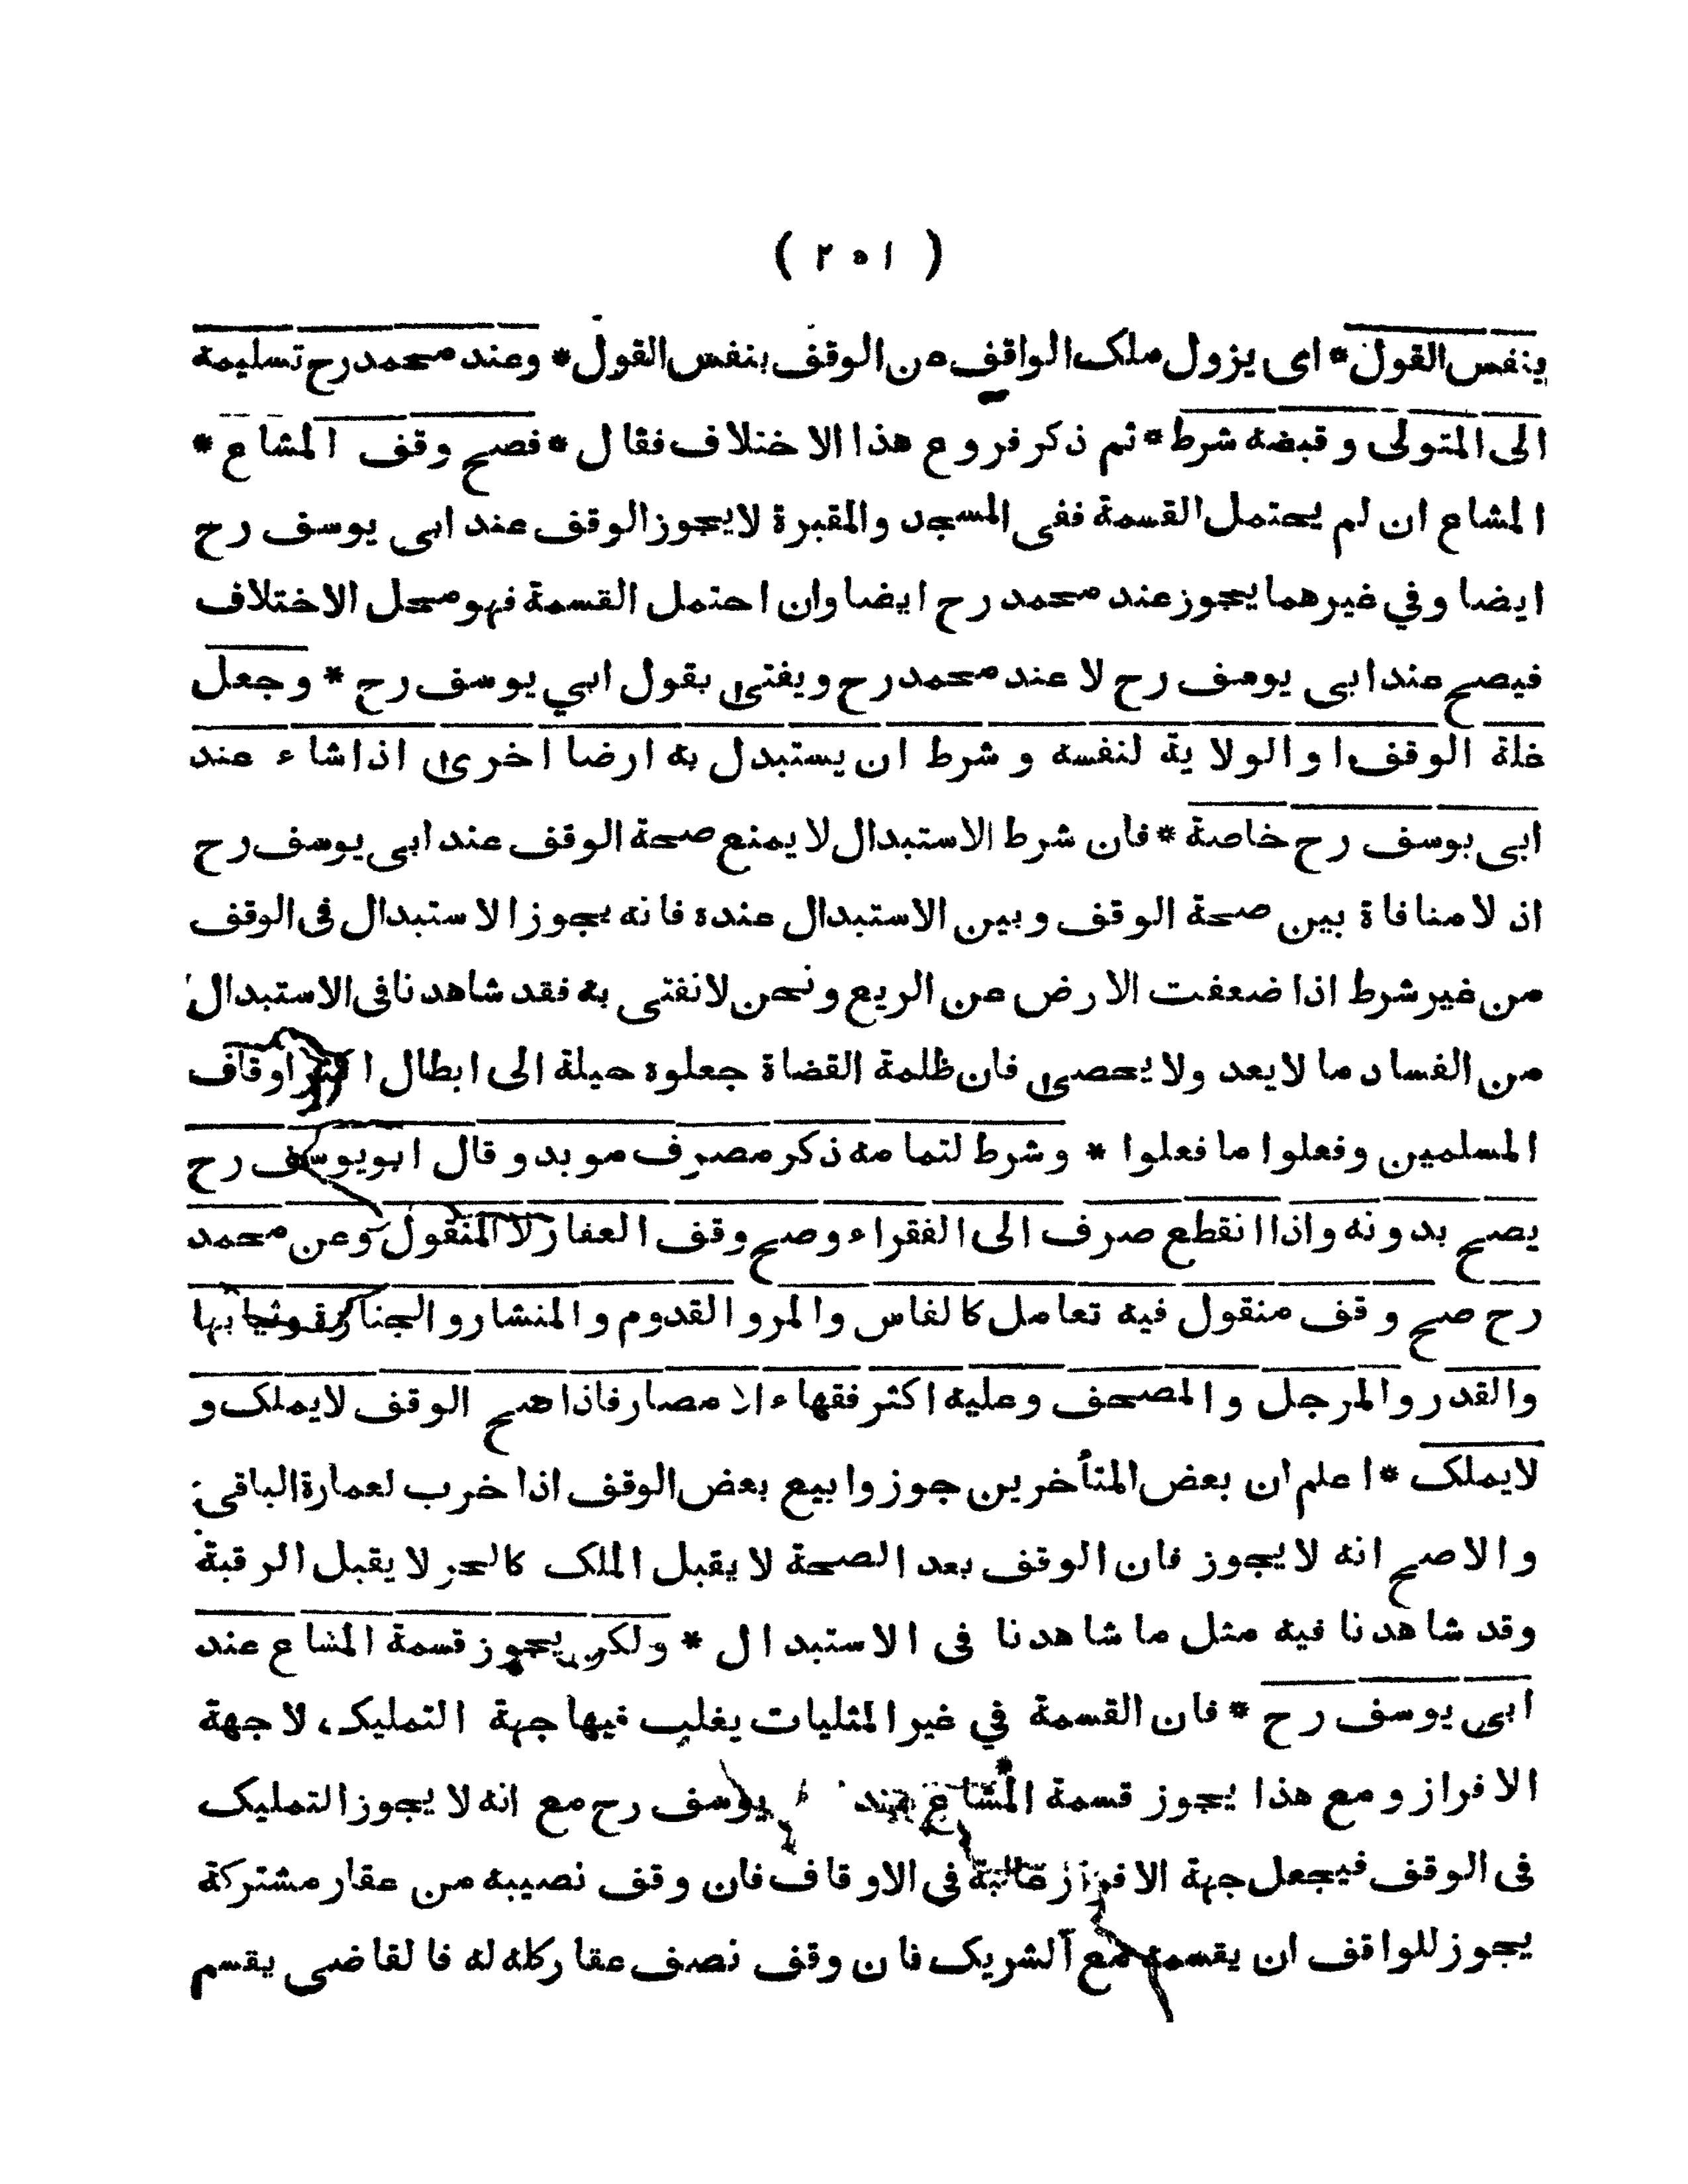 ( ٢٥١ )
بنفس القول * اى يزول ملك الواقف عن الوقف بنفس القول * وعند محمد رح تسليمه
الى المتولى وقبضه شرط * ثم ذكر فروع هذا الاختلاف فقال * فصح وقف المشاع *
المشاع ان لم يحتمل القسمة ففى المسجد والمقبرة لا يجوز الوقف عند ابى يوسف رح
ايضا وفي غيرهما يجوز عند محمد رح ايضا وان احتمل القسمة فهو محل الاختلاف
فيصح عند ابى يوسف رح لا عند محمد رح ويفتى بقول ابي يوسف رح * وجعل
غلة الوقف او الولاية لنفسه وشرط ان يستبدل به ارضا اخرى اذا شاء عند
ابى يوسف رح خاصة * فان شرط الاستبدال لا يمنع صحة الوقف عند ابى يوسف رح
اذ لا منافاة بين صحة الوقف وبين الاستبدال عنده فانه يجوز الاستبدال فى الوقف
من غير شرط اذا ضعفت الارض عن الريع ونحن لا نفتى به فقد شاهدنا فى الاستبدال
من الفساد ما لا يعد ولا يحصى فان ظلمة القضاة جعلوه حيلة الى ابطال اكثر اوقاف
المسلمين وفعلوا ما فعلوا * وشرط لتمامه ذكر مصرف موبد وقال ابو يوسف رح
يصح بدونه واذا انقطع صرف الى الفقراء وصح وقف العقار لا المنقول وعن محمد
رح صح وقف منقول فيه تعامل كالفاس والمر والقدوم والمنشار والجنازة وثيابها
والقدر والمرجل والمصحف وعليه اكثر فقهاء الامصار فاذا صح الوقف لا يملك و
لا يملك * اعلم ان بعض المتأخرين جوزوا بيع بعض الوقف اذا خرب لعمارة الباقى
والاصح انه لا يجوز فان الوقف بعد الصحة لا يقبل الملك كالحر لا يقبل الرقبة
وقد شاهدنا فيه مثل ما شاهدنا فى الاستبدال * ولكن يجوز قسمة المشاع عند
ابى يوسف رح * فان القسمة في غير المثليات يغلب فيها جهة التمليك لا جهة
الافراز ومع هذا يجوز قسمة المشاع عند يوسف رح مع انه لا يجوز التمليك
فى الوقف فيجعل جهة الافراز غالبة في الاوقاف فان وقف نصيبه من عقار مشتركة
يجوز للواقف ان يقسمه مع الشريك فان وقف نصف عقار كله له فالقاضى يقسم